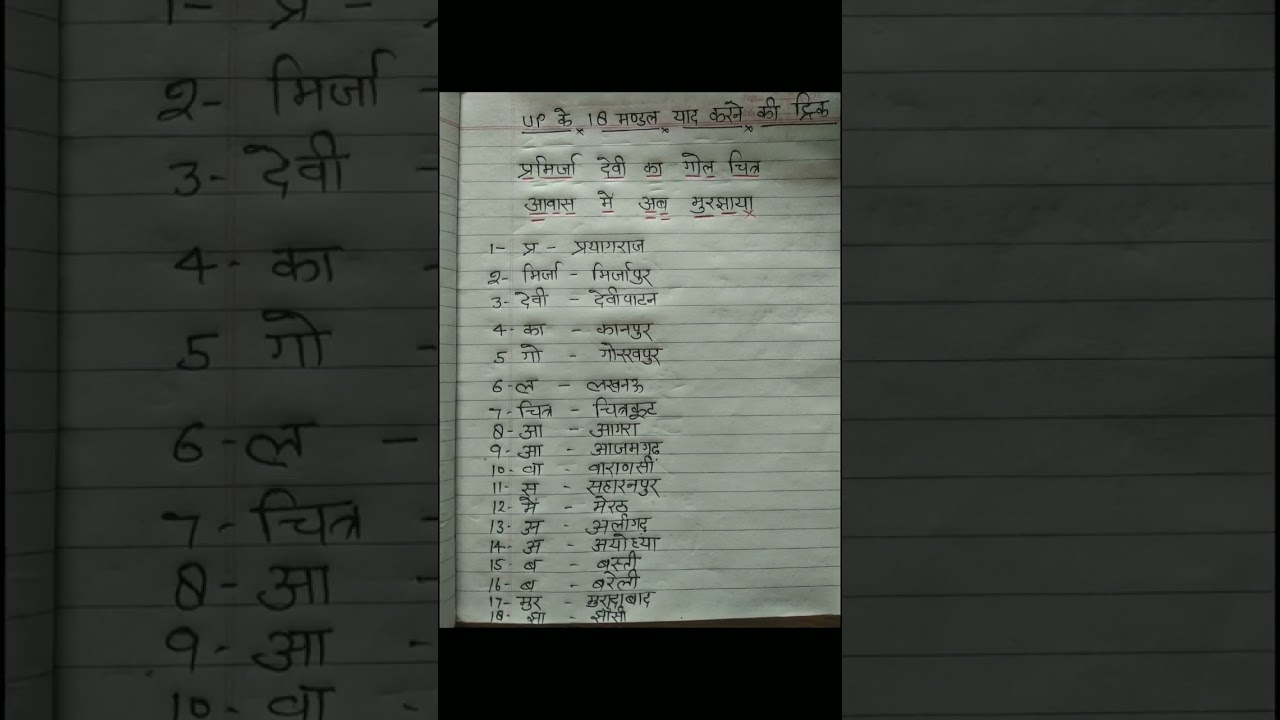 UP के 18 मण्डल याद करने की ट्रिक
प्रमिर्जा देवी का गोल चित्र
आवास में अब मुरझाया
1- प्र - प्रयागराज
2- मिर्जा - मिर्जापुर
3- देवी - देवीपाटन
4- का - कानपुर
5 गो - गोरखपुर
6- ल - लखनऊ
7- चित्र - चित्रकूट
8- आ - आगरा
9- आ - आजमगढ़
10- वा - वाराणसी
11- स - सहारनपुर
12- में - मेरठ
13- अ - अलीगढ़
14- अ - अयोध्या
15- ब - बस्ती
16- ब - बरेली
17- मुर - मुरादाबाद
18- झा - झाँसी